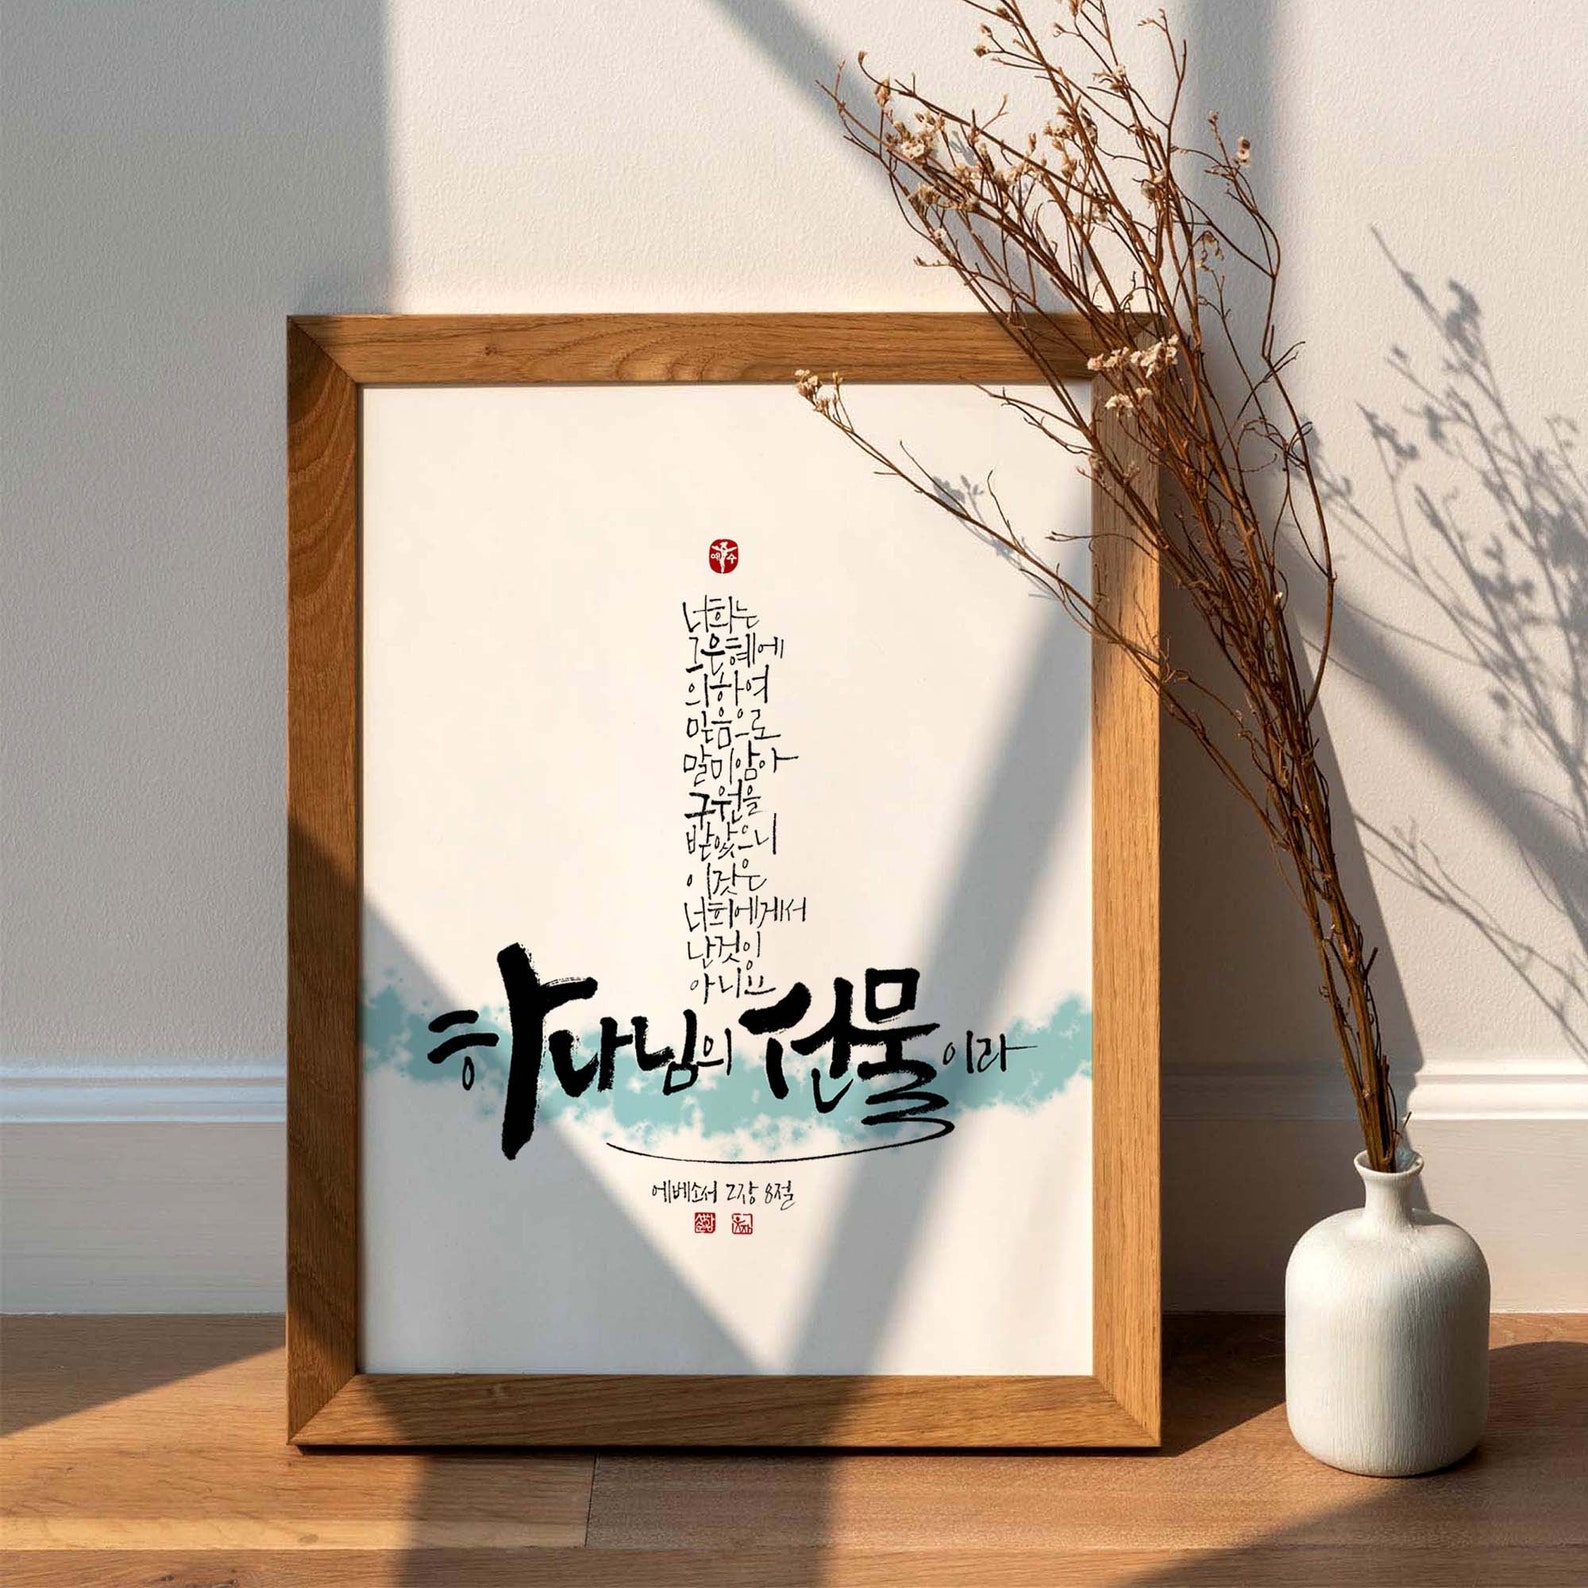 예수
너희는
그 은혜에
의하여
믿음으로
말미암아
구원을
받았으니
이것은
너희에게서
난 것이
아니요
하나님의 선물이라
에베소서 2장 8절